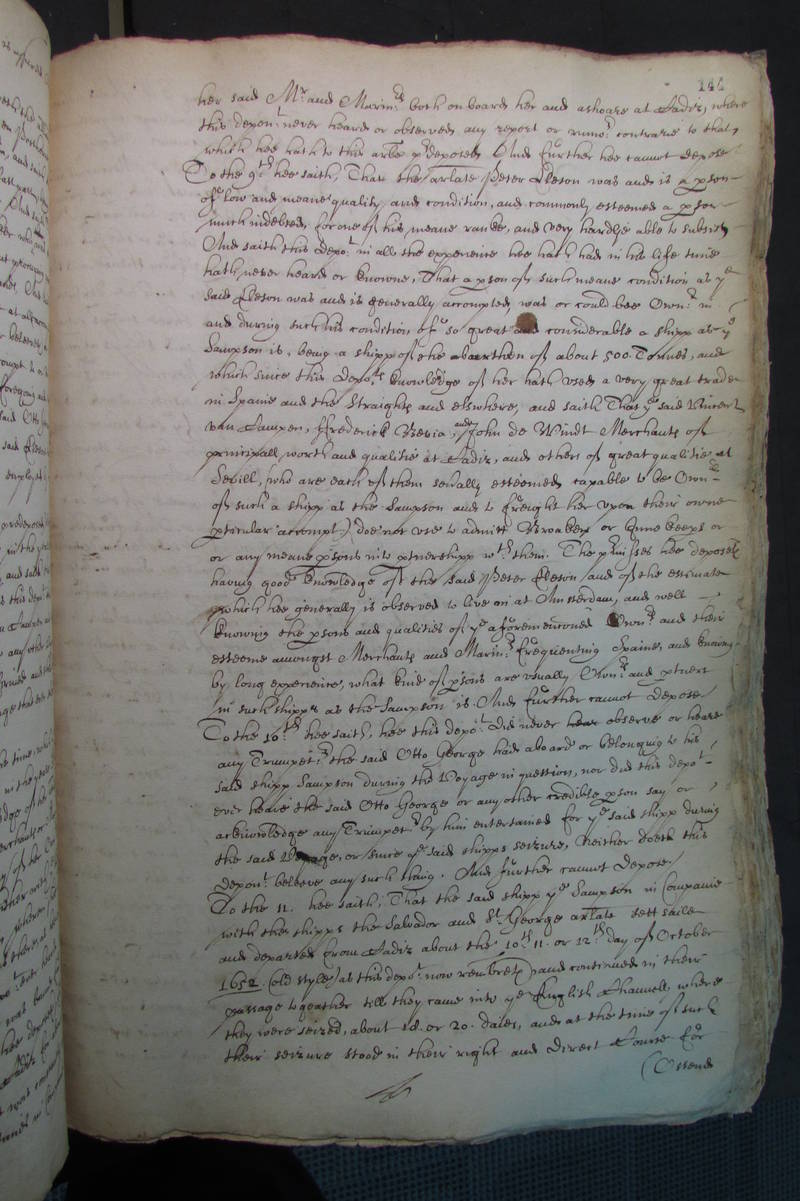 144
her said Mr. and Marinrs. both on board her and ashoare at Cadiz, where
this depont. never heard or observed any report or rumor. contrarie to that
which hee hath to this arle pr.deposed. And further hee cannot depose
To the 9th. hee saith, That the arlate Peter Eleson was and is a pson
of low and meane quality and condition, and commonly esteemed a pson
much indebted, for one of his meane ranke, and very hardly able to subsist
And saith this depot. in all the experience hee hath had in his life time
hath never heard or knowne, That a pson of such meane condition as ye
said Eleson was and is generally accompted, was or could bee Ownr. in
and during such his condition, of so great and considerable a shipp as ye
Sampson is, being a shipp of the burthen of about 500. Tonnes, and
which since this depots. knowledge of her hath used a very great trade
in Spaine and the Straights and elswhere, and saith That ye said Vincent
van Campen, ffrederick Bevia, and John de Windt Merchants of
principall worth and qualitie at Cadiz, and others of great qualitie at
Sevill, (who are each of them sevally esteemed capable to be Ownr.
of such a shipp as the Sampson and to freight her upon their owne
pticular accompt) doe not use to admitt Broakers or Inne keeps or
or any meane psons into ptnershipp wth. them. The pmisses hee deposeth
having good knowledge of the said Peter Eleson and of the estimate
which hee generally is observed to live in at Amsterdam, and well
knowing the psons and qualities of ye aforementioned Ownrs. and their
esteeme amongst Merchants and Marinrs. frequenting Spaine, and knowing
by long experience, what kind of psons are usually Ownrs. and ptners
in such shipps as the Sampson is. And further cannot depose
To the 10th. hee saith, hee this depot. did never observe or heare
any Trumpetr. the said Otto George had aboard or belonging to his
said shipp Sampson during the Voyage in question, nor did this depot.
ever heare the said Otto George or any other credible pson say or
acknowledge any Trumpetr. by him entertained for ye said shipp during
the said Voyage, or since ye said shipps seizure, Neither doeth this
depont. beleeve any such thing. And further cannot depose.
To the 11. hee saith, That the said shipp ye Sampson in Companie
with the shipps the Salvador and St. George arlate sett saile
and departed from Cadiz about the 10th. 11. or 12th day of October
1652. (old style) as this depot. now rembreth) and continued in their
passage togeather till they came into ye English Channell, where
they were seized, about 18. or 20. daies, and at the time of such
their seizure stood in their right and direct Course for
(Ostend